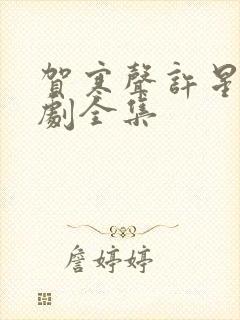 賀寒聲許星
劇全集
詹婷婷